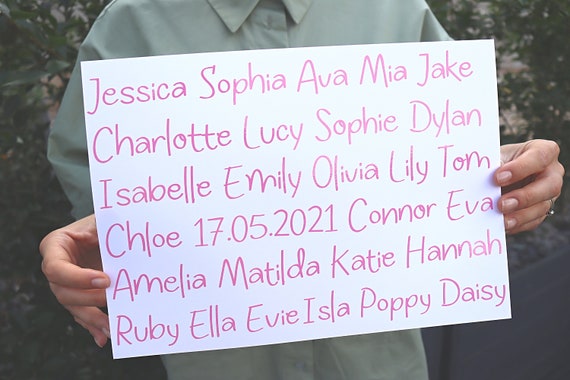 Jessica Sophia Ava Mia Jake
Charlotte Lucy Sophie Dylan
Isabelle Emily Olivia Lily Tom
Chloe 17.05.2021 Connor Eva
Amelia Matilda Katie Hannah
Ruby Ella Evie Isla Poppy Daisy